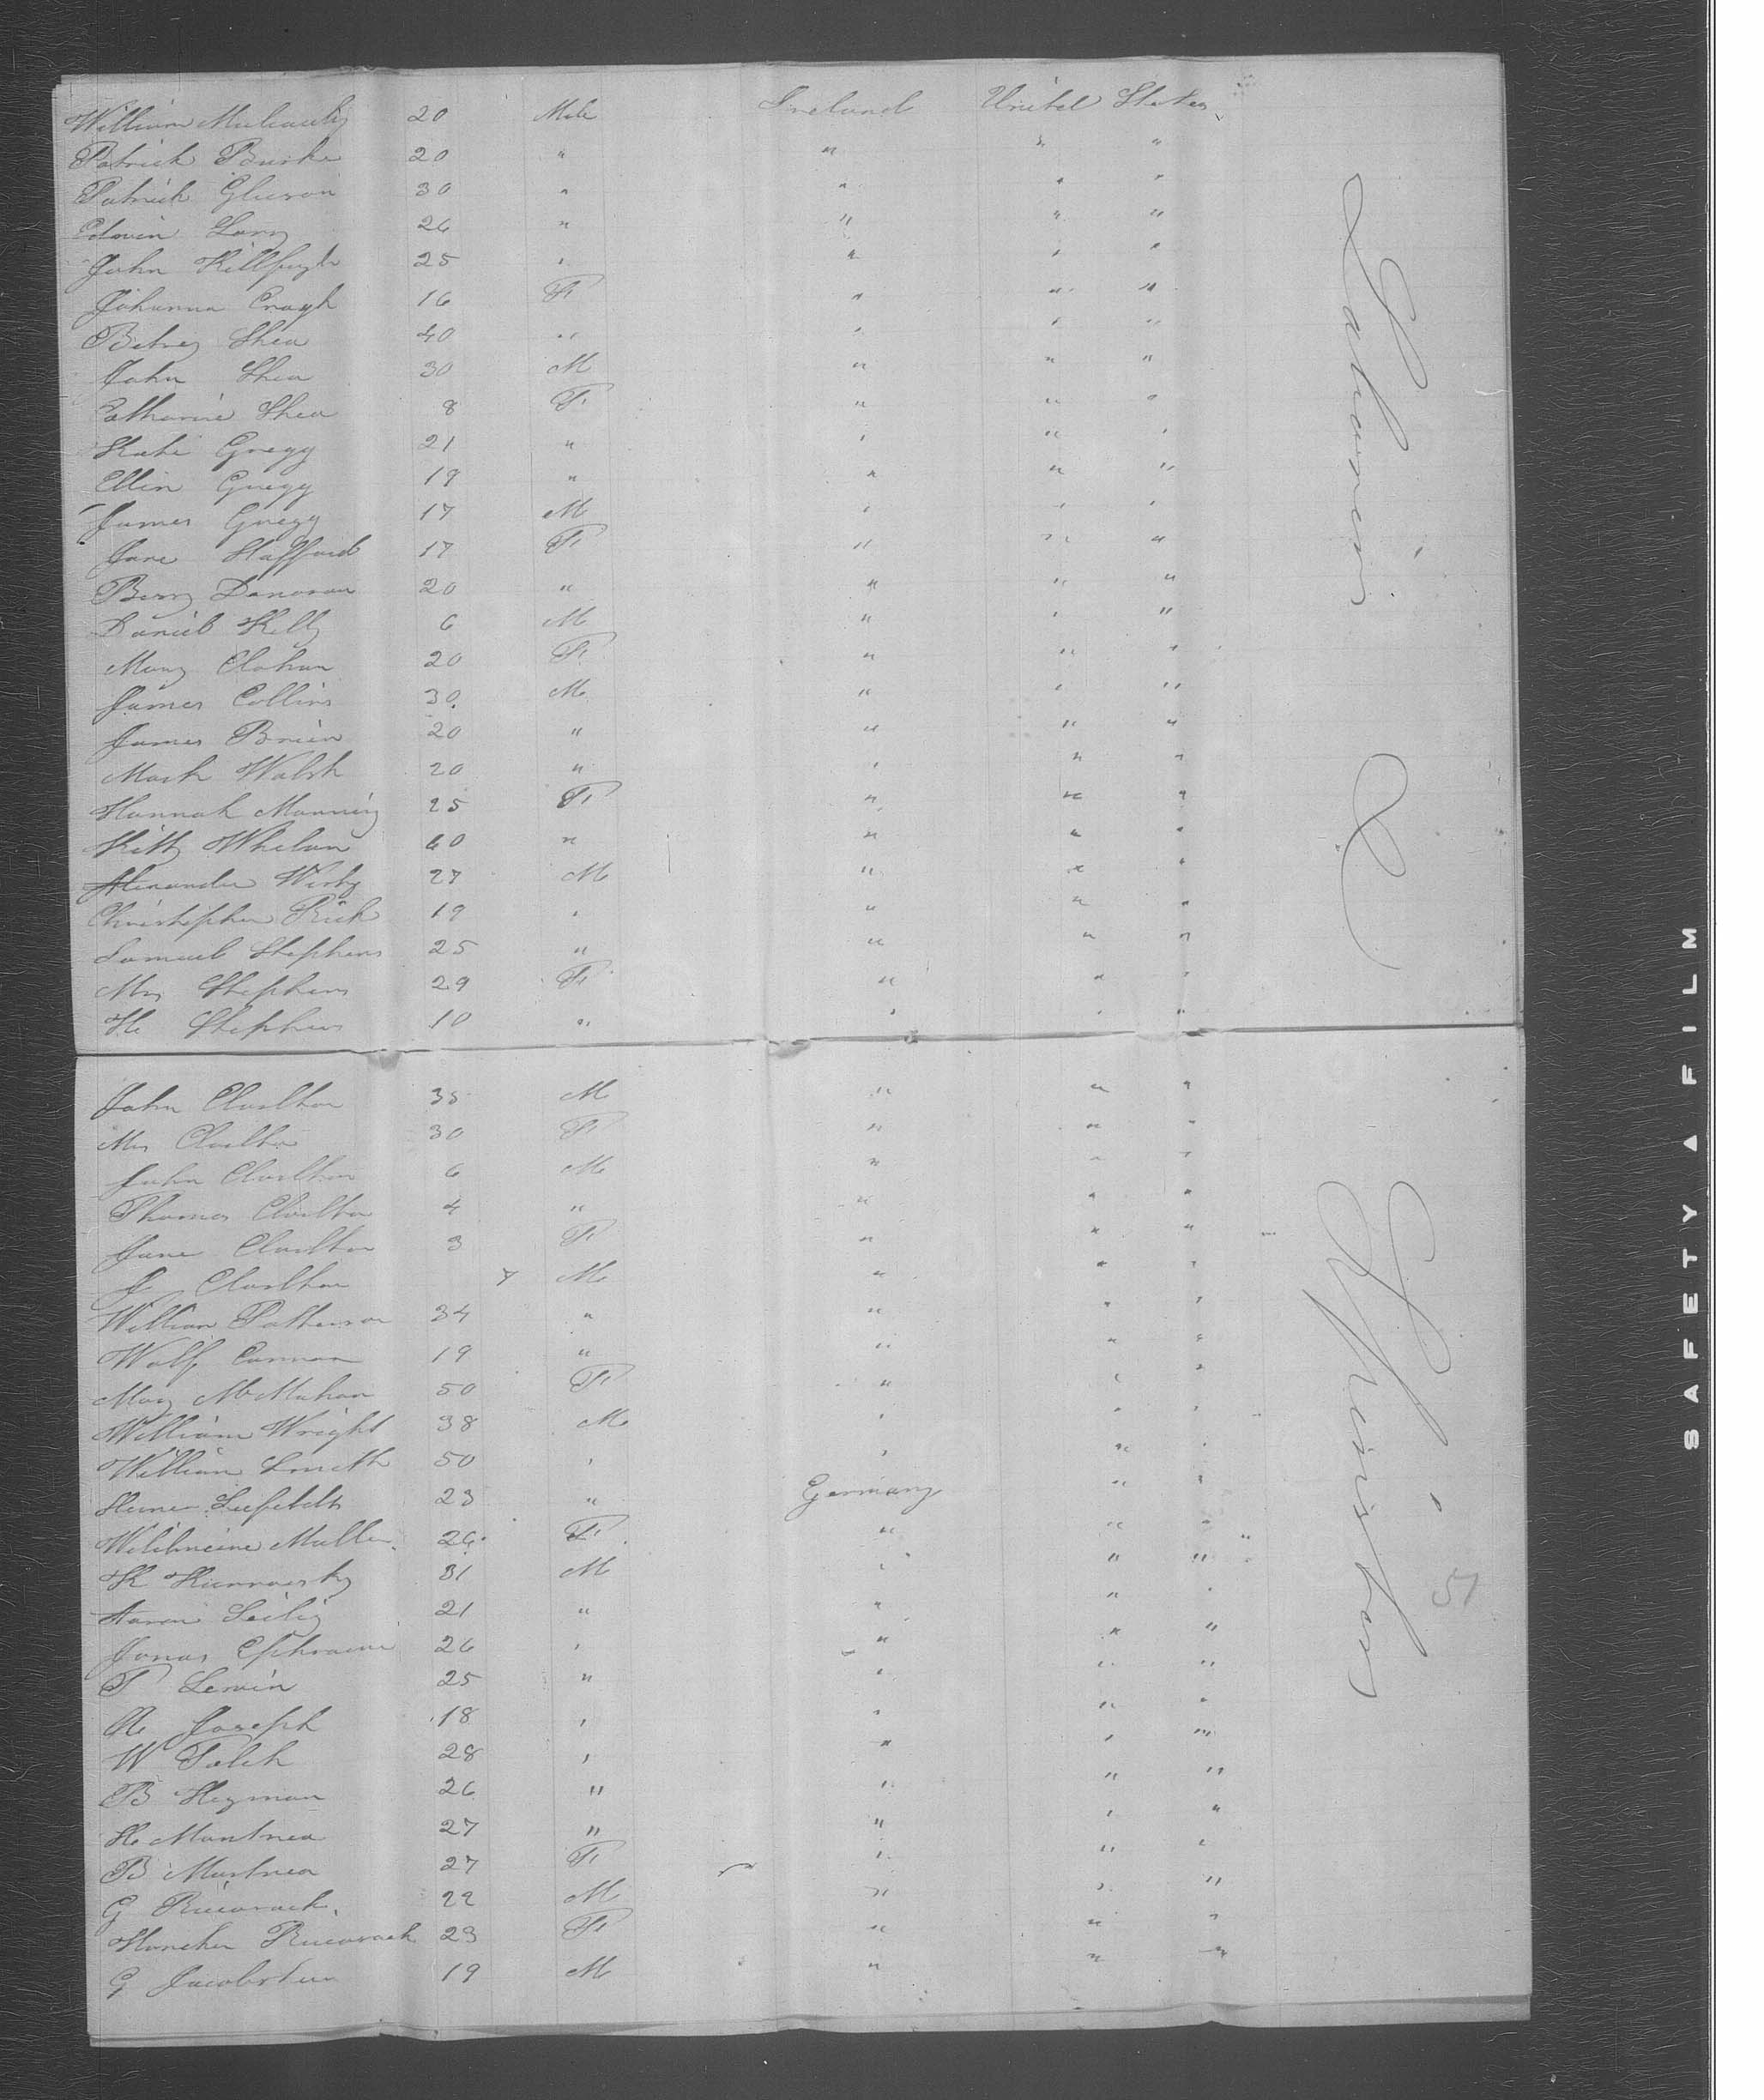 William 20 Male Ireland United States
Patrick Burke 20 " " " "
Patrick Gleeson 30 " " " "
Edwin Long 26 " " " "
John 25 " " " "
Johanna Cragh 16 F " " "
Betsey Shea 40 " " " "
John Shea 30 M " " "
Catharine Shea 8 F " " "
Kate Gregg 21 " " " "
Ellin Gregg 19 " " " "
James Gregg 17 M " " "
Jane Stafford 17 F " " "
Donovan 20 " " " "
Daniel Kelly 6 M " " "
Mary Clohan 20 F " " "
James Collins 30 M " " "
James Brien 20 " " " "
Mark Walsh 20 " " " "
Hannah Manning 25 F " " "
Kitty Whelan 60 " " " "
Alexander 27 M " " "
Christopher Rick 19 " " " "
Samuel Stephens 25 " " " "
Mrs Stephens 29 F " " "
H Stephens 10 " " " "
John Charlton 35 M " " "
Mrs Charlton 30 F " " "
John Charlton 6 M " " "
Thomas Charlton 4 " " " "
Jane Charlton 3 F " " "
J Charlton M " " "
William Patterson 34 " " " "
Cannon 19 " " " "
Mary McMahon 50 F " " "
William Wright 38 M " " "
William Smith 50 " " " "
23 " Germany " "
Muller 26 F " " "
K 31 M " " "
Aaron 21 " " " "
Jonas Ephraim 26 " " " "
T Lewin 25 " " " "
Joseph 18 " " " "
W 28 " " " "
B Heyman 26 " " " "
H 27 " " " "
B 27 F " " "
G 22 M " " "
23 F " " "
G Jacobstein 19 M " " "
Laborers
&
Spinsters
51
SAFETY A FILM